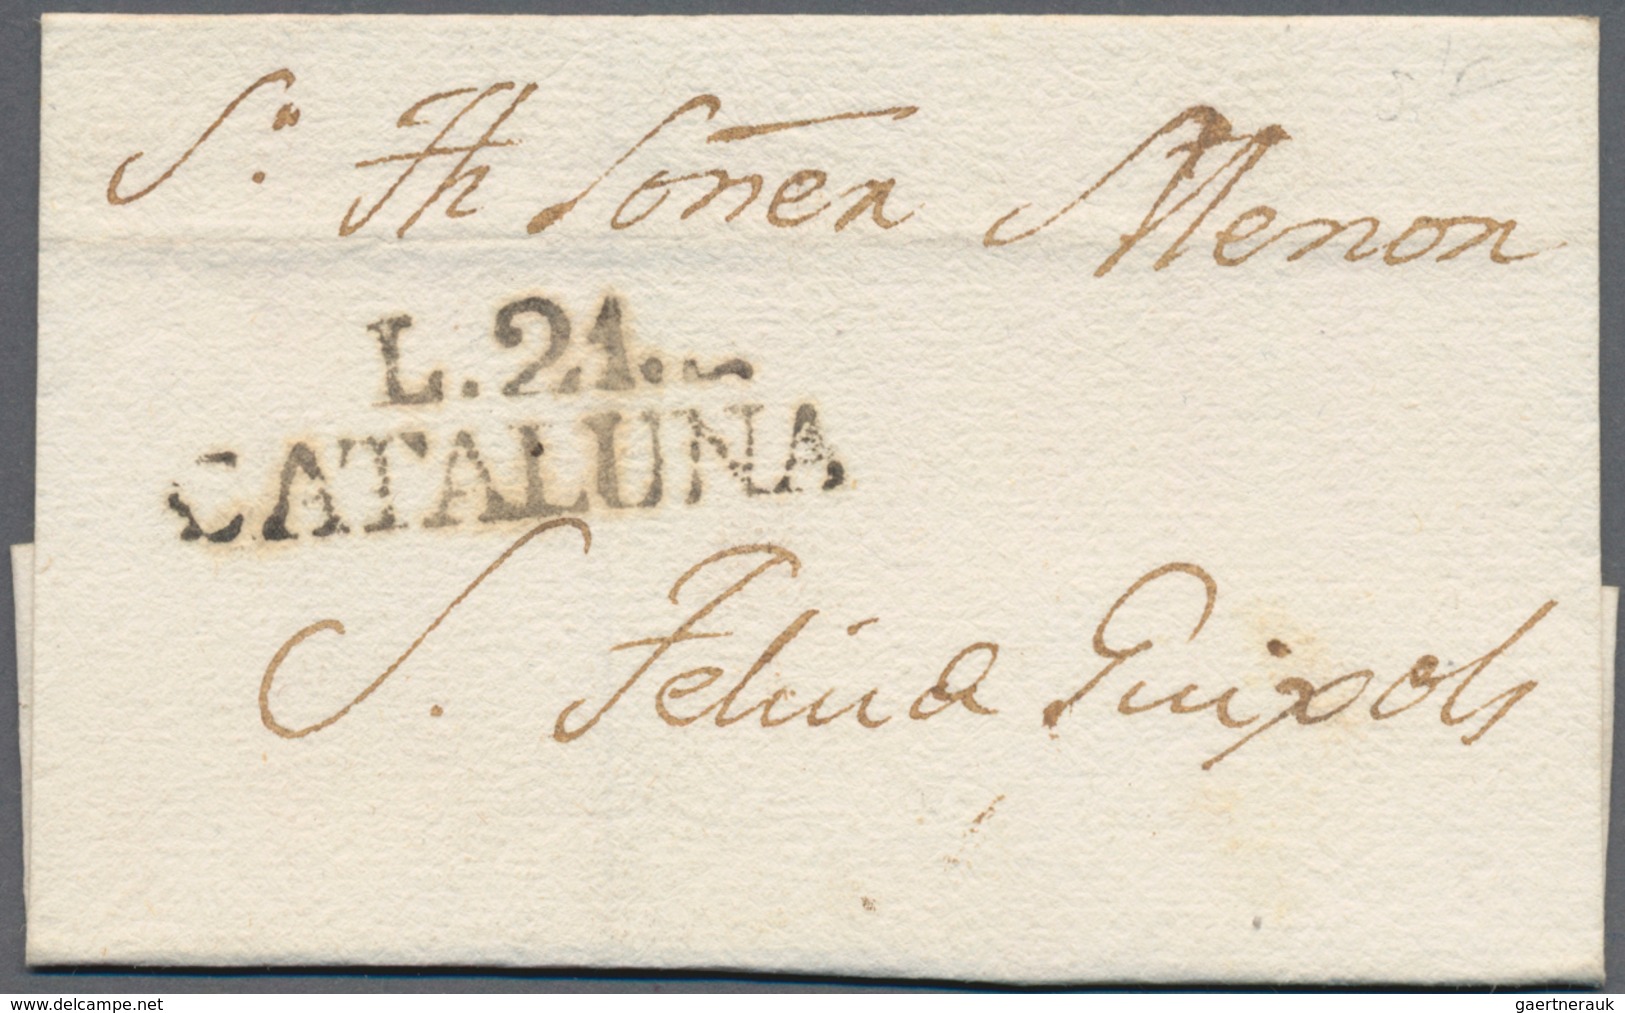 Sr. Fh Soñer Menor
L.21.~
CATALUNA
S. Feliu a Guixols
delcampe.net
gaertnerauk